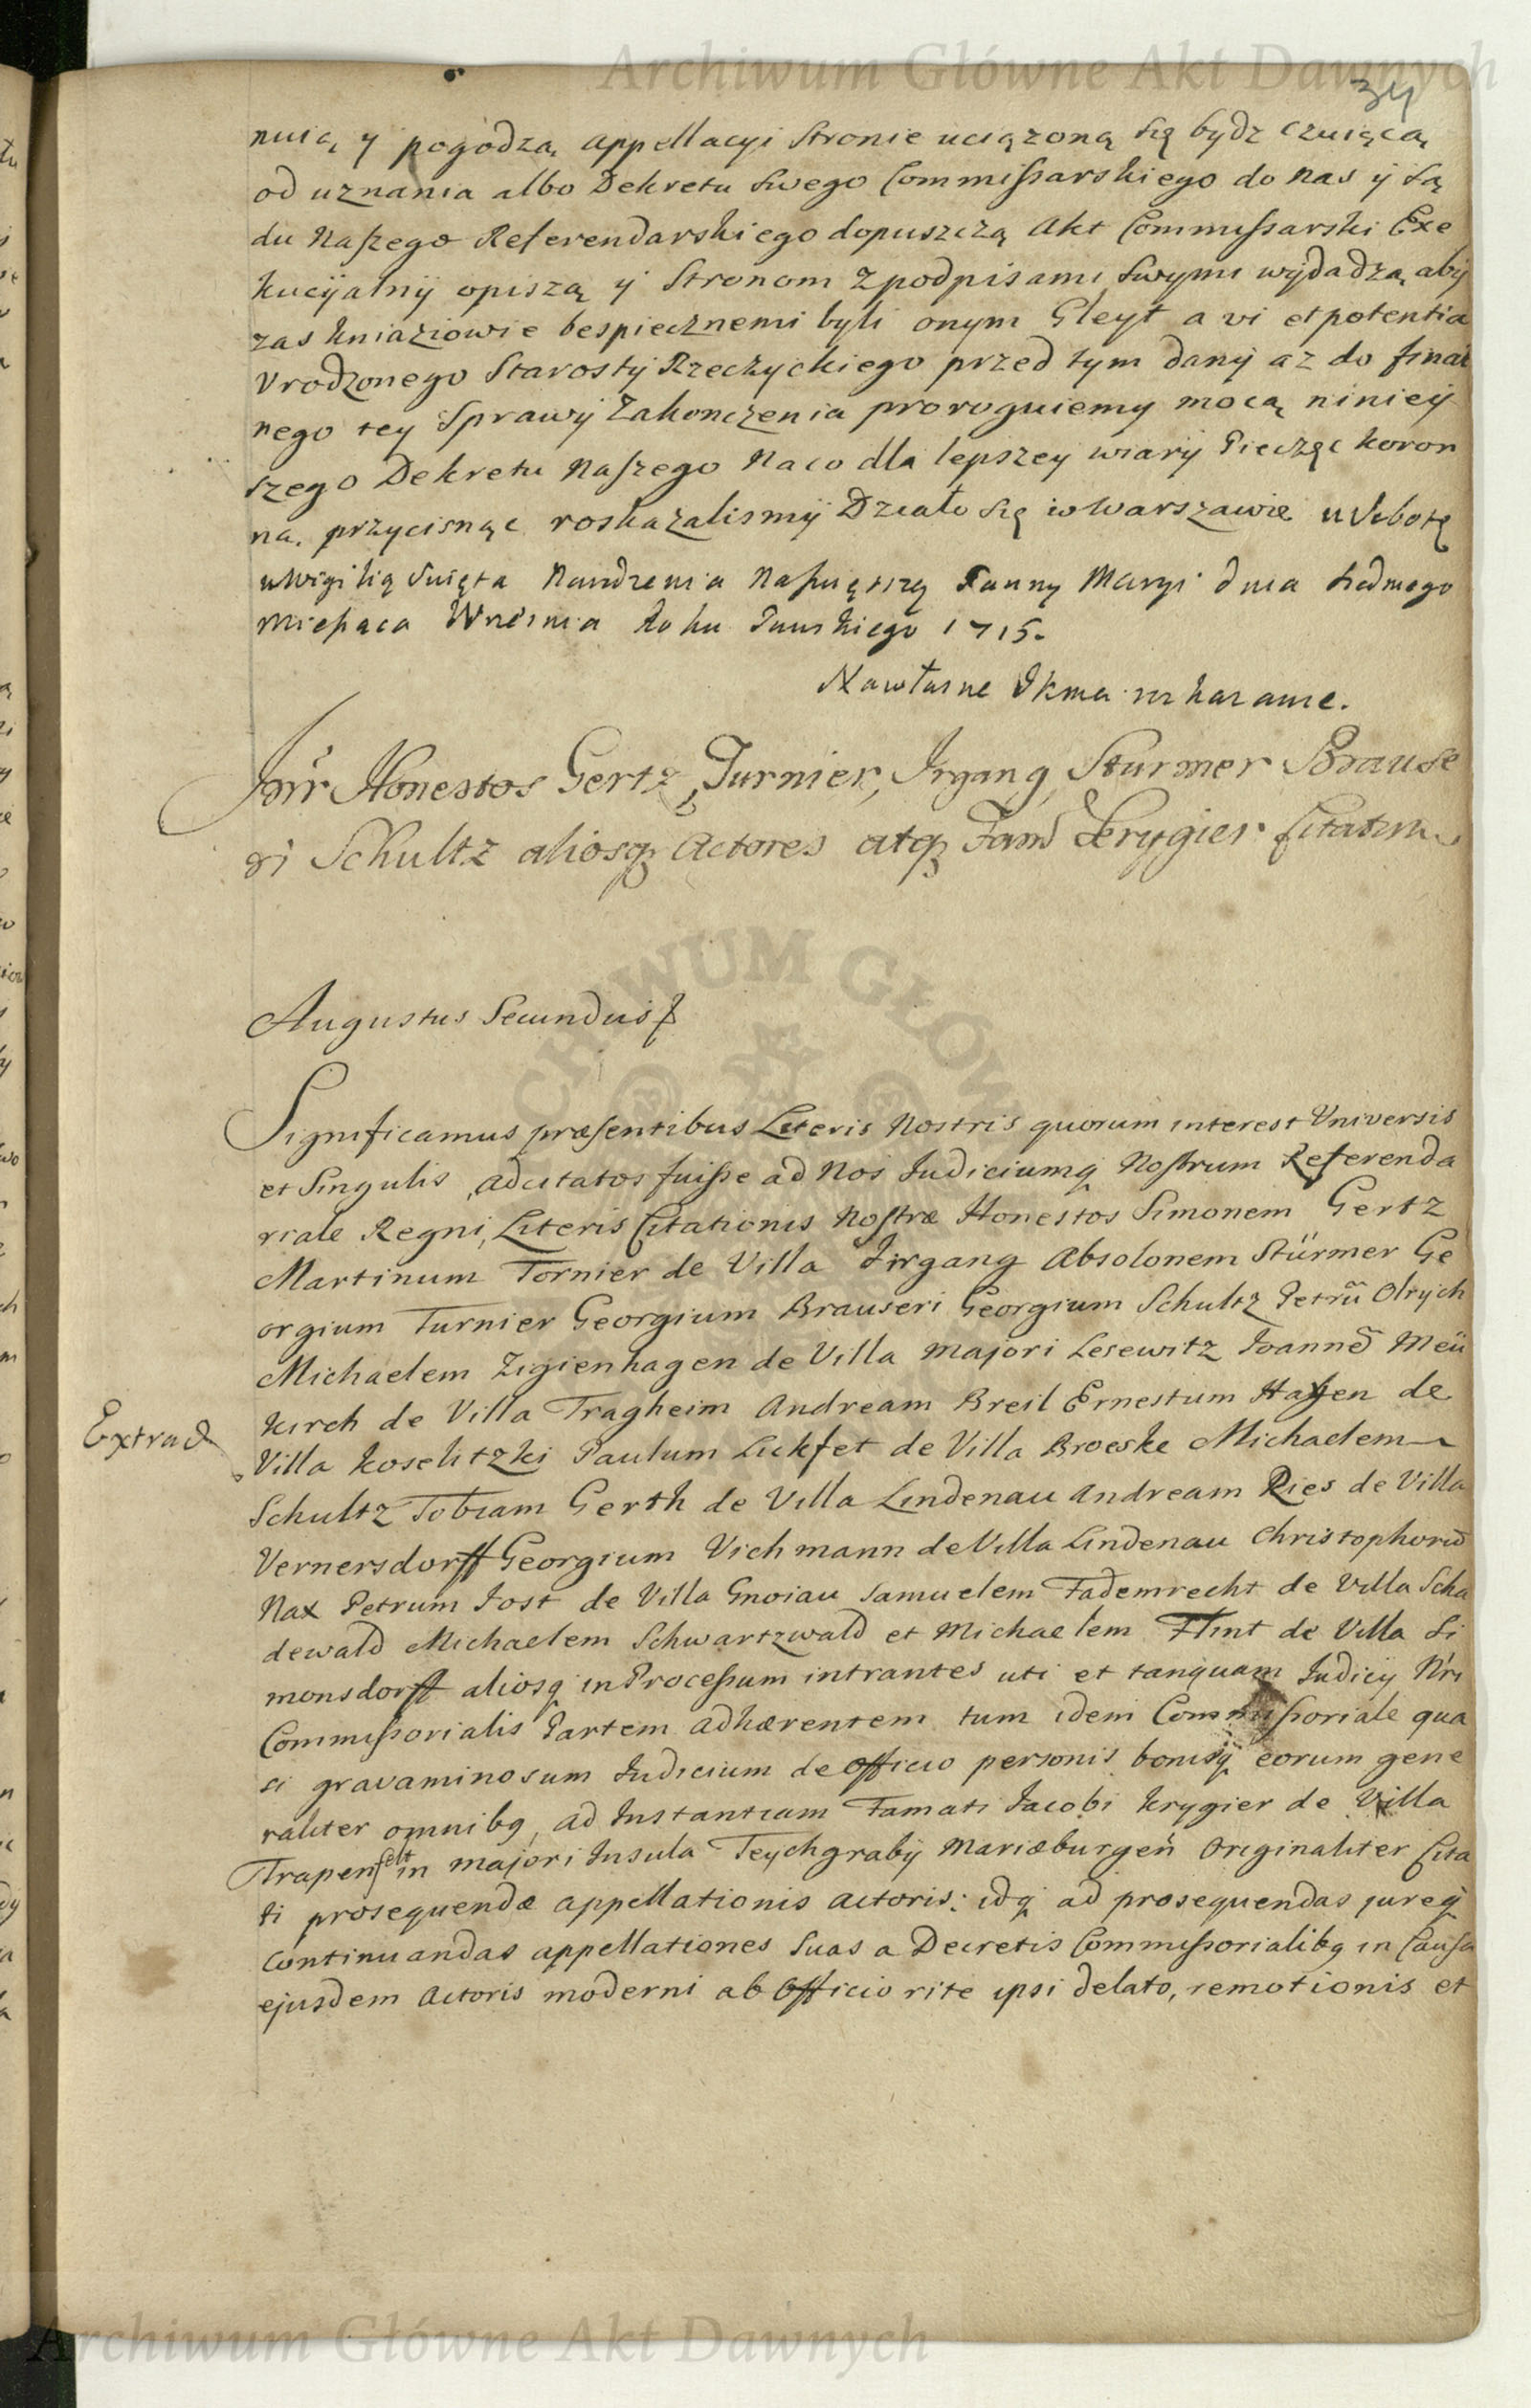 Archiwum Główne Akt Dawnych
34
nuią, y pogodzą, appellacyi Stronie uciązoną Się bydz czuiącą
od uznania albo Dekretu Swego Commissarskiego do nas ÿ Są
du Naszego Referendarskiego dopuszczą Akt Commissarski Exe
kucÿalnÿ opiszą ÿ Stronom z podpisami Swymi wÿdadzą, abÿ
zas kniaziowie bespiecznemi byli onym Gleyt a vi et potentia
Vrodzonego Starostÿ Rzeczyckiego przed tym danÿ az do final
nego tey Sprawÿ Zakonczenia proroguiemy mocą niniey
szego Dekretu Naszego Na co dla lepszey wiarÿ Pieczęc koron
ną, przycisnąc roskazalismÿ Działo Się w Warszawie w Sobotę
w Wigilią Swięta Narodzenia Naswiętszey Panny Maryi dnia Siedmego
Miesiąca Wrzesnia Roku Panskiego 1715.
Na własne JKMci roskazanie.
Intr Honestos Gertz, Turnier, Irgang Sturmer Brause
ri Schultz aliosq Actores atq Fam Krygier Citatum
Augustus Secundus
Significamus præsentibus Literis Nostris quorum interest Universis
et Singulis, adcitatos fuisse ad Nos Judiciumq Nostrum Referenda
riale Regni, Literis Citationis Nostræ Honestos Simonem Gertz
Martinum Tornier de Villa Jirgang Absolonem Stürmer Ge
orgium Turnier Georgium Brauseri Georgium Schultz Petrũ Olrych
Michaelem Zigienhagen de Villa Majori Lesewitz Joannẽ Meü
kirch de Villa Tragheim Andream Breil Ernestum Hagen de
Extrad
Villa Koselitzki Paulum Luckfet de Villa Broeske Michaelem
Schultz Tobiam Gerth de Villa Lindenau Andream Ries de Villa
Vernersdorff Georgium Vichmann de Villa Lindenau Christophorũ
Nax Petrum Jost de Villa Gnoiau Samuelem Fademrecht de Villa Scha
dewald Michaelem Schwartzwald et Michaelem Flint de Villa Si
monsdorff aliosq in Processum intrantes uti et tanquam Judicij Nri
Commissorialis Partem adhærentem tum idem Commissoriale qua
si gravaminosum Judicium de officio personis bonisq eorum gene
raliter omnibq, ad Instantiam Famati Jacobi Krygier de Villa
Trapenfelt in majori Insula Teychgrabÿ Mariæburgeñ Originaliter Cita
ti prosequendæ appellationis actoris: idq ad prosequendas jureq
continuandas appellationes Suas a Decretis Commissorialibq in Causa
ejusdem Actoris moderni ab Officio rite ipsi delato, remotionis et
Archiwum Główne Akt Dawnych